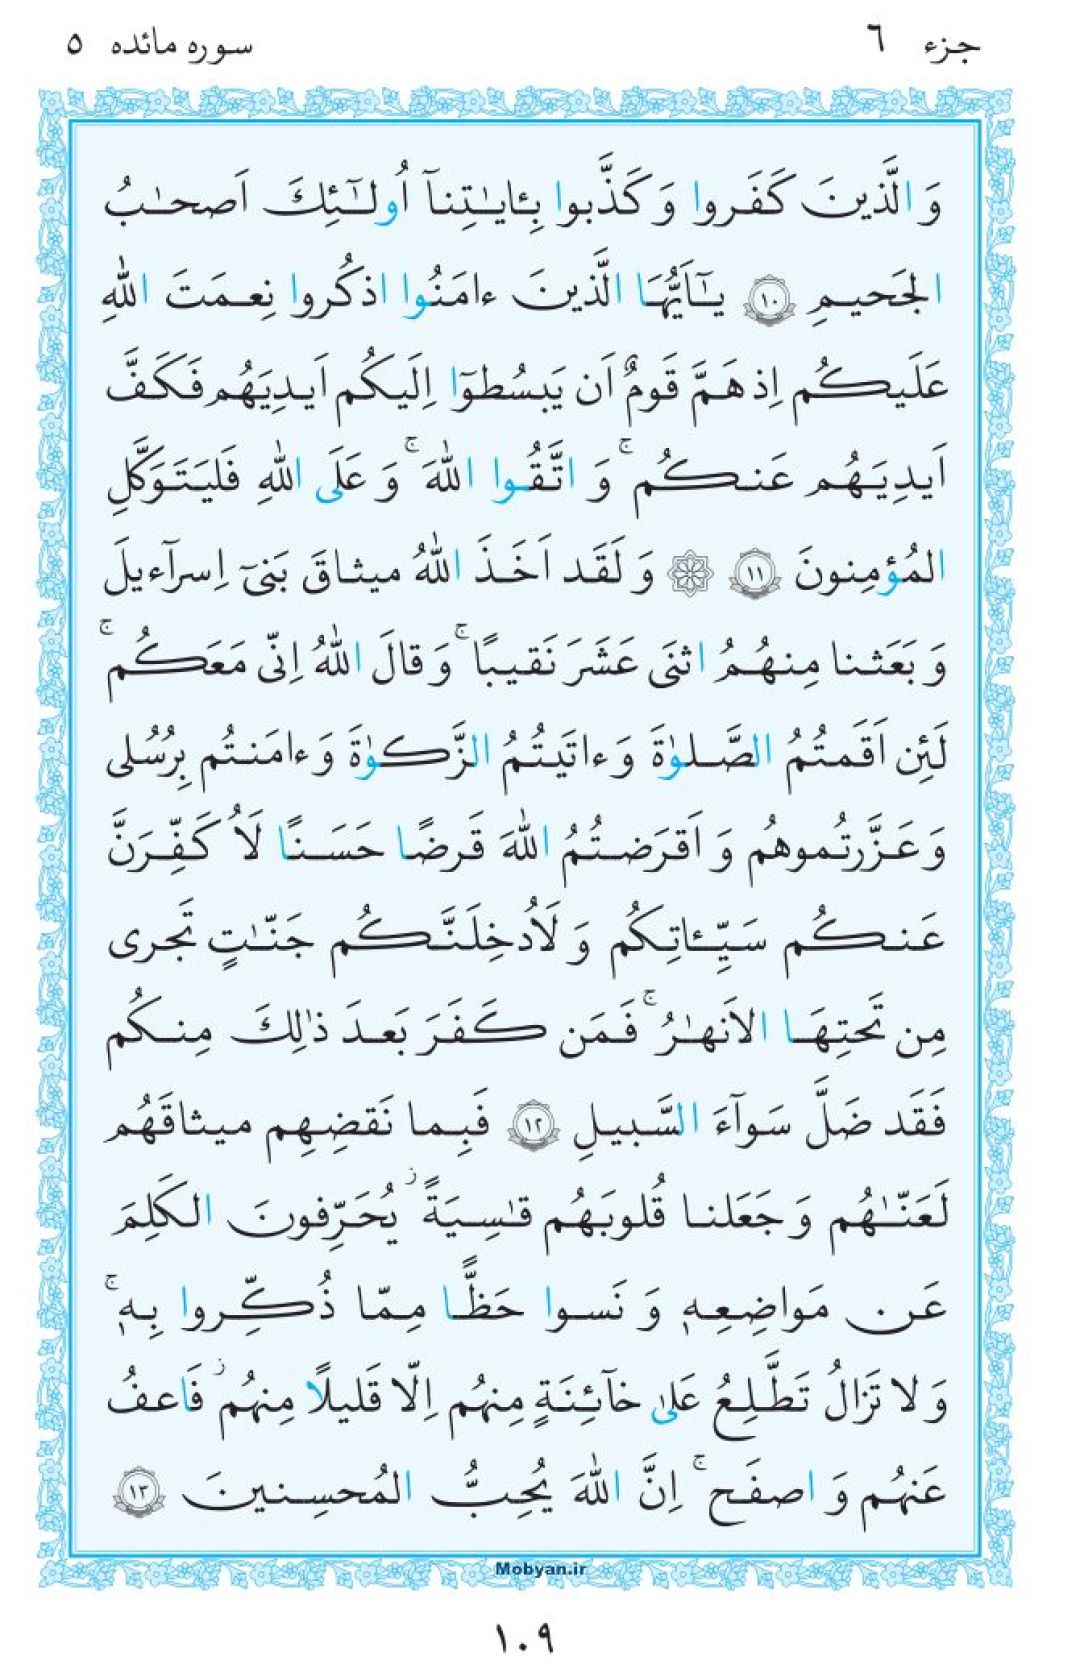 جزء ٦ سوره مائده ٥
وَ الَّذينَ كَفَروا وَ كَذَّبوا بِـٔايـٰتِنآ اُولـٰٓئِكَ اَصحـٰبُ
الجَحيـمِ ١٠ يـٰٓاَيُّهَا الَّذينَ ءامَنُوا اذكُروا نِعـمَتَ اللّٰهِ
عَلَيكُم اِذ هَمَّ قَومٌ اَن يَبسُطوٓا اِلَيكُم اَيـدِيَهُم فَكَفَّ
اَيدِيَـهُم عَنـكُم ۚ وَ اتَّقُـوا اللّٰهَ ۚ وَ عَلَى اللّٰهِ فَليَتَـوَكَّلِ
المُؤمِنونَ ١١ ۞ وَ لَقَد اَخَـذَ اللّٰهُ ميثـاقَ بَنىٓ اِسرآءيلَ
وَ بَعَثنا مِنهُـمُ اثنَى عَشَرَ نَقيبًا ۚ وَ قالَ اللّٰهُ اِنّى مَعَكُم ۚ
لَئِن اَقَمتُمُ الصَّـلوٰةَ وَ ءاتَيتُمُ الزَّكـوٰةَ وَ ءامَنتُم بِرُسُلى
وَ عَـزَّرتُموهُم وَ اَقرَضـتُمُ اللّٰهَ قَرضًـا حَسَـنًا لَاُ كَفِّرَنَّ
عَـنكُم سَيِّـٔاتِكُم وَ لَاُدخِلَنَّـكُم جَنّـٰتٍ تَجرى
مِن تَحتِهَـا الاَنهـٰرُ ۚ فَـمَن كَـفَرَ بَعـدَ ذٰلِكَ مِنـكُم
فَقَد ضَلَّ سَوآءَ السَّبيـلِ ١٢ فَبِـما نَقضِهِم ميثاقَهُم
لَعَنّـٰهُم وَ جَعَلنـا قُلوبَهُم قـٰسِيَةً ۖ يُحَرِّفونَ الكَلِمَ
عَن مَواضِعِهٖ وَ نَسوا حَظًّـا مِمّا ذُكِّـروا بِهٖ ۚ
وَ لا تَزالُ تَطَّلِـعُ عَلىٰ خآئِنَةٍ مِنهُم اِلّا قَليلًا مِنهُم ۖ فَاعفُ
عَنهُم وَ اصفَح ۚ اِنَّ اللّٰهَ يُحِبُّ المُحسِـنينَ ١٣
Mobyan.ir
١٠٩